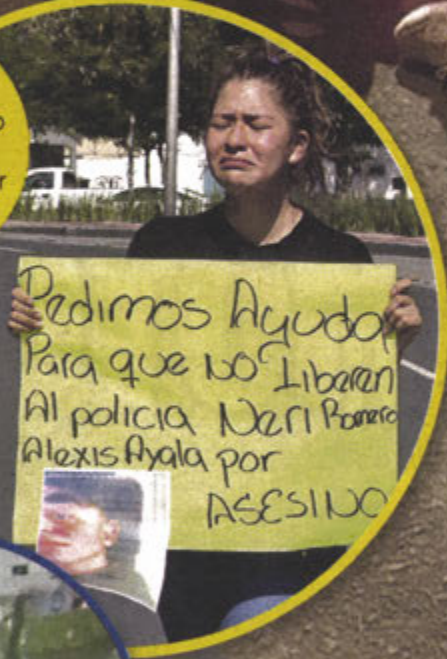 Pedimos Ayuda
Para que NO Liberen
Al policia Neri Romero
Alexis Ayala por
ASESINO